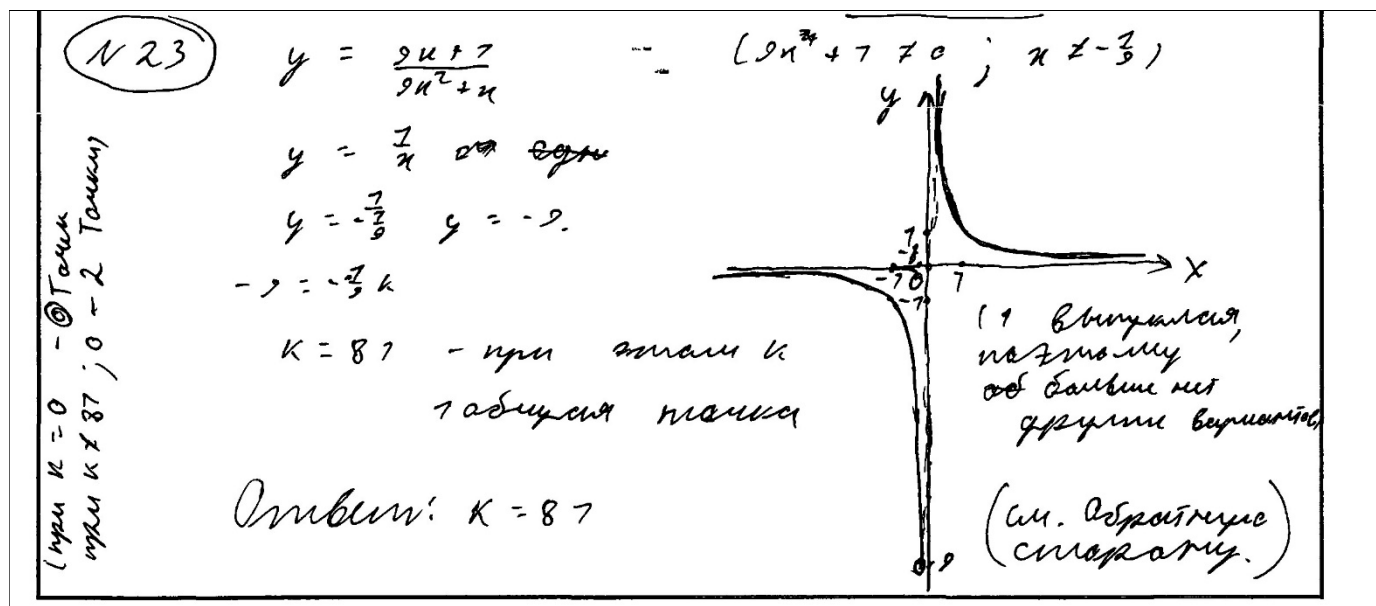 N 23
y = (9x+1)/(9x²+x) (9x²+1 ≠ 0 ; x ≠ -1/9)
y = 1/x
y = -1/(1/9) y = -9.
-9 = -1/9 k
k = 81 - при этом k
1 общая точка
Ответ: k = 81
(при k = 0 - 0 Точек
при k ≠ 81 ; 0 - 2 Точки)
y
1
-1 0 1 X
-1
-9
(1 выпуклая,
поэтому
больше нет
других вариантов)
(см. Обратную
сторону.)